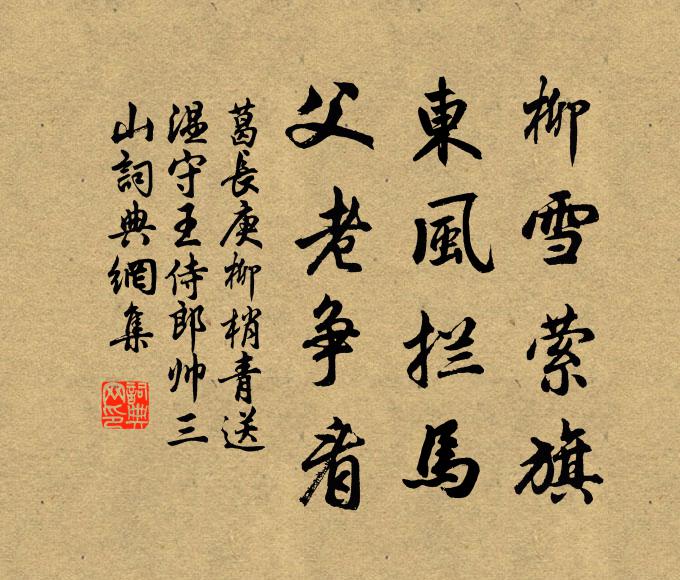 柳雪萦旗
東風拦馬
父老争看
葛長庚柳梢青送
温守王侍郎帅三
山詞典網集
詞典
网印